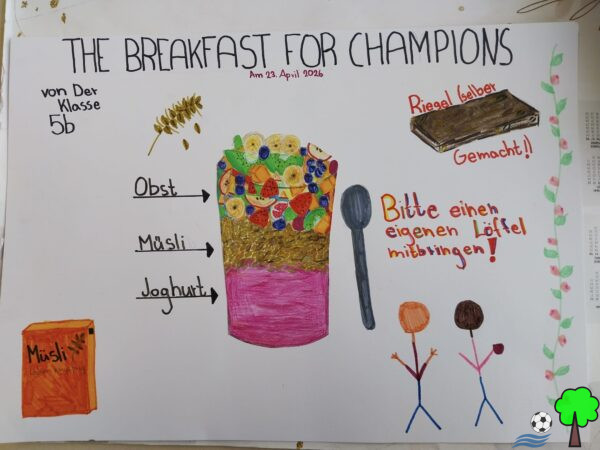 THE BREAKFAST FOR CHAMPIONS
Am 23. April 2026
von Der
Klasse
5b
Riegel (selber
Gemacht!)
Obst
Müsli
Joghurt
Bitte einen
eigenen Löffel
mitbringen!
Müsli